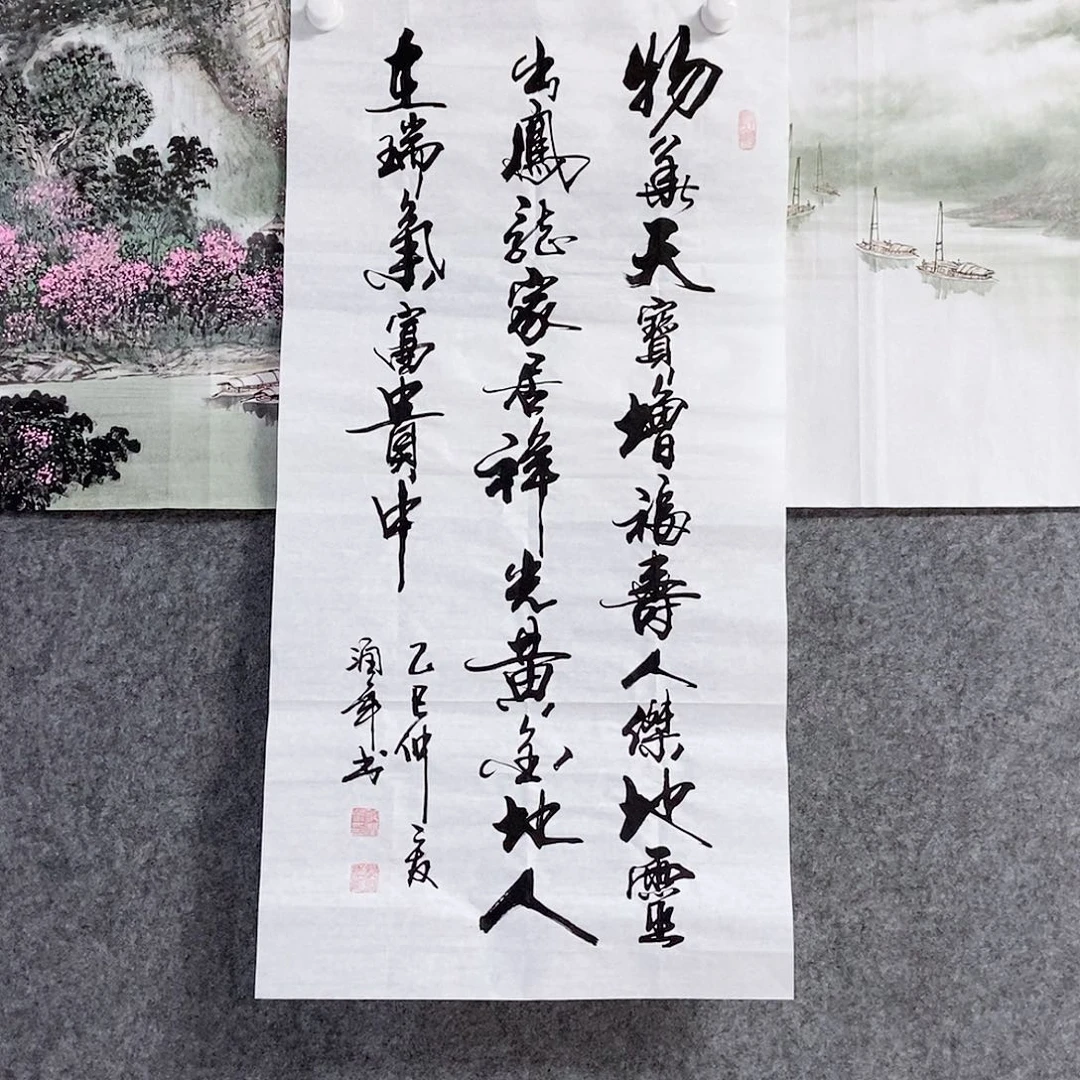 物華天寶增福壽人傑地靈
出鳳龍家居祥光黃金地人
在瑞氣富貴中
乙巳仲夏
潤年书